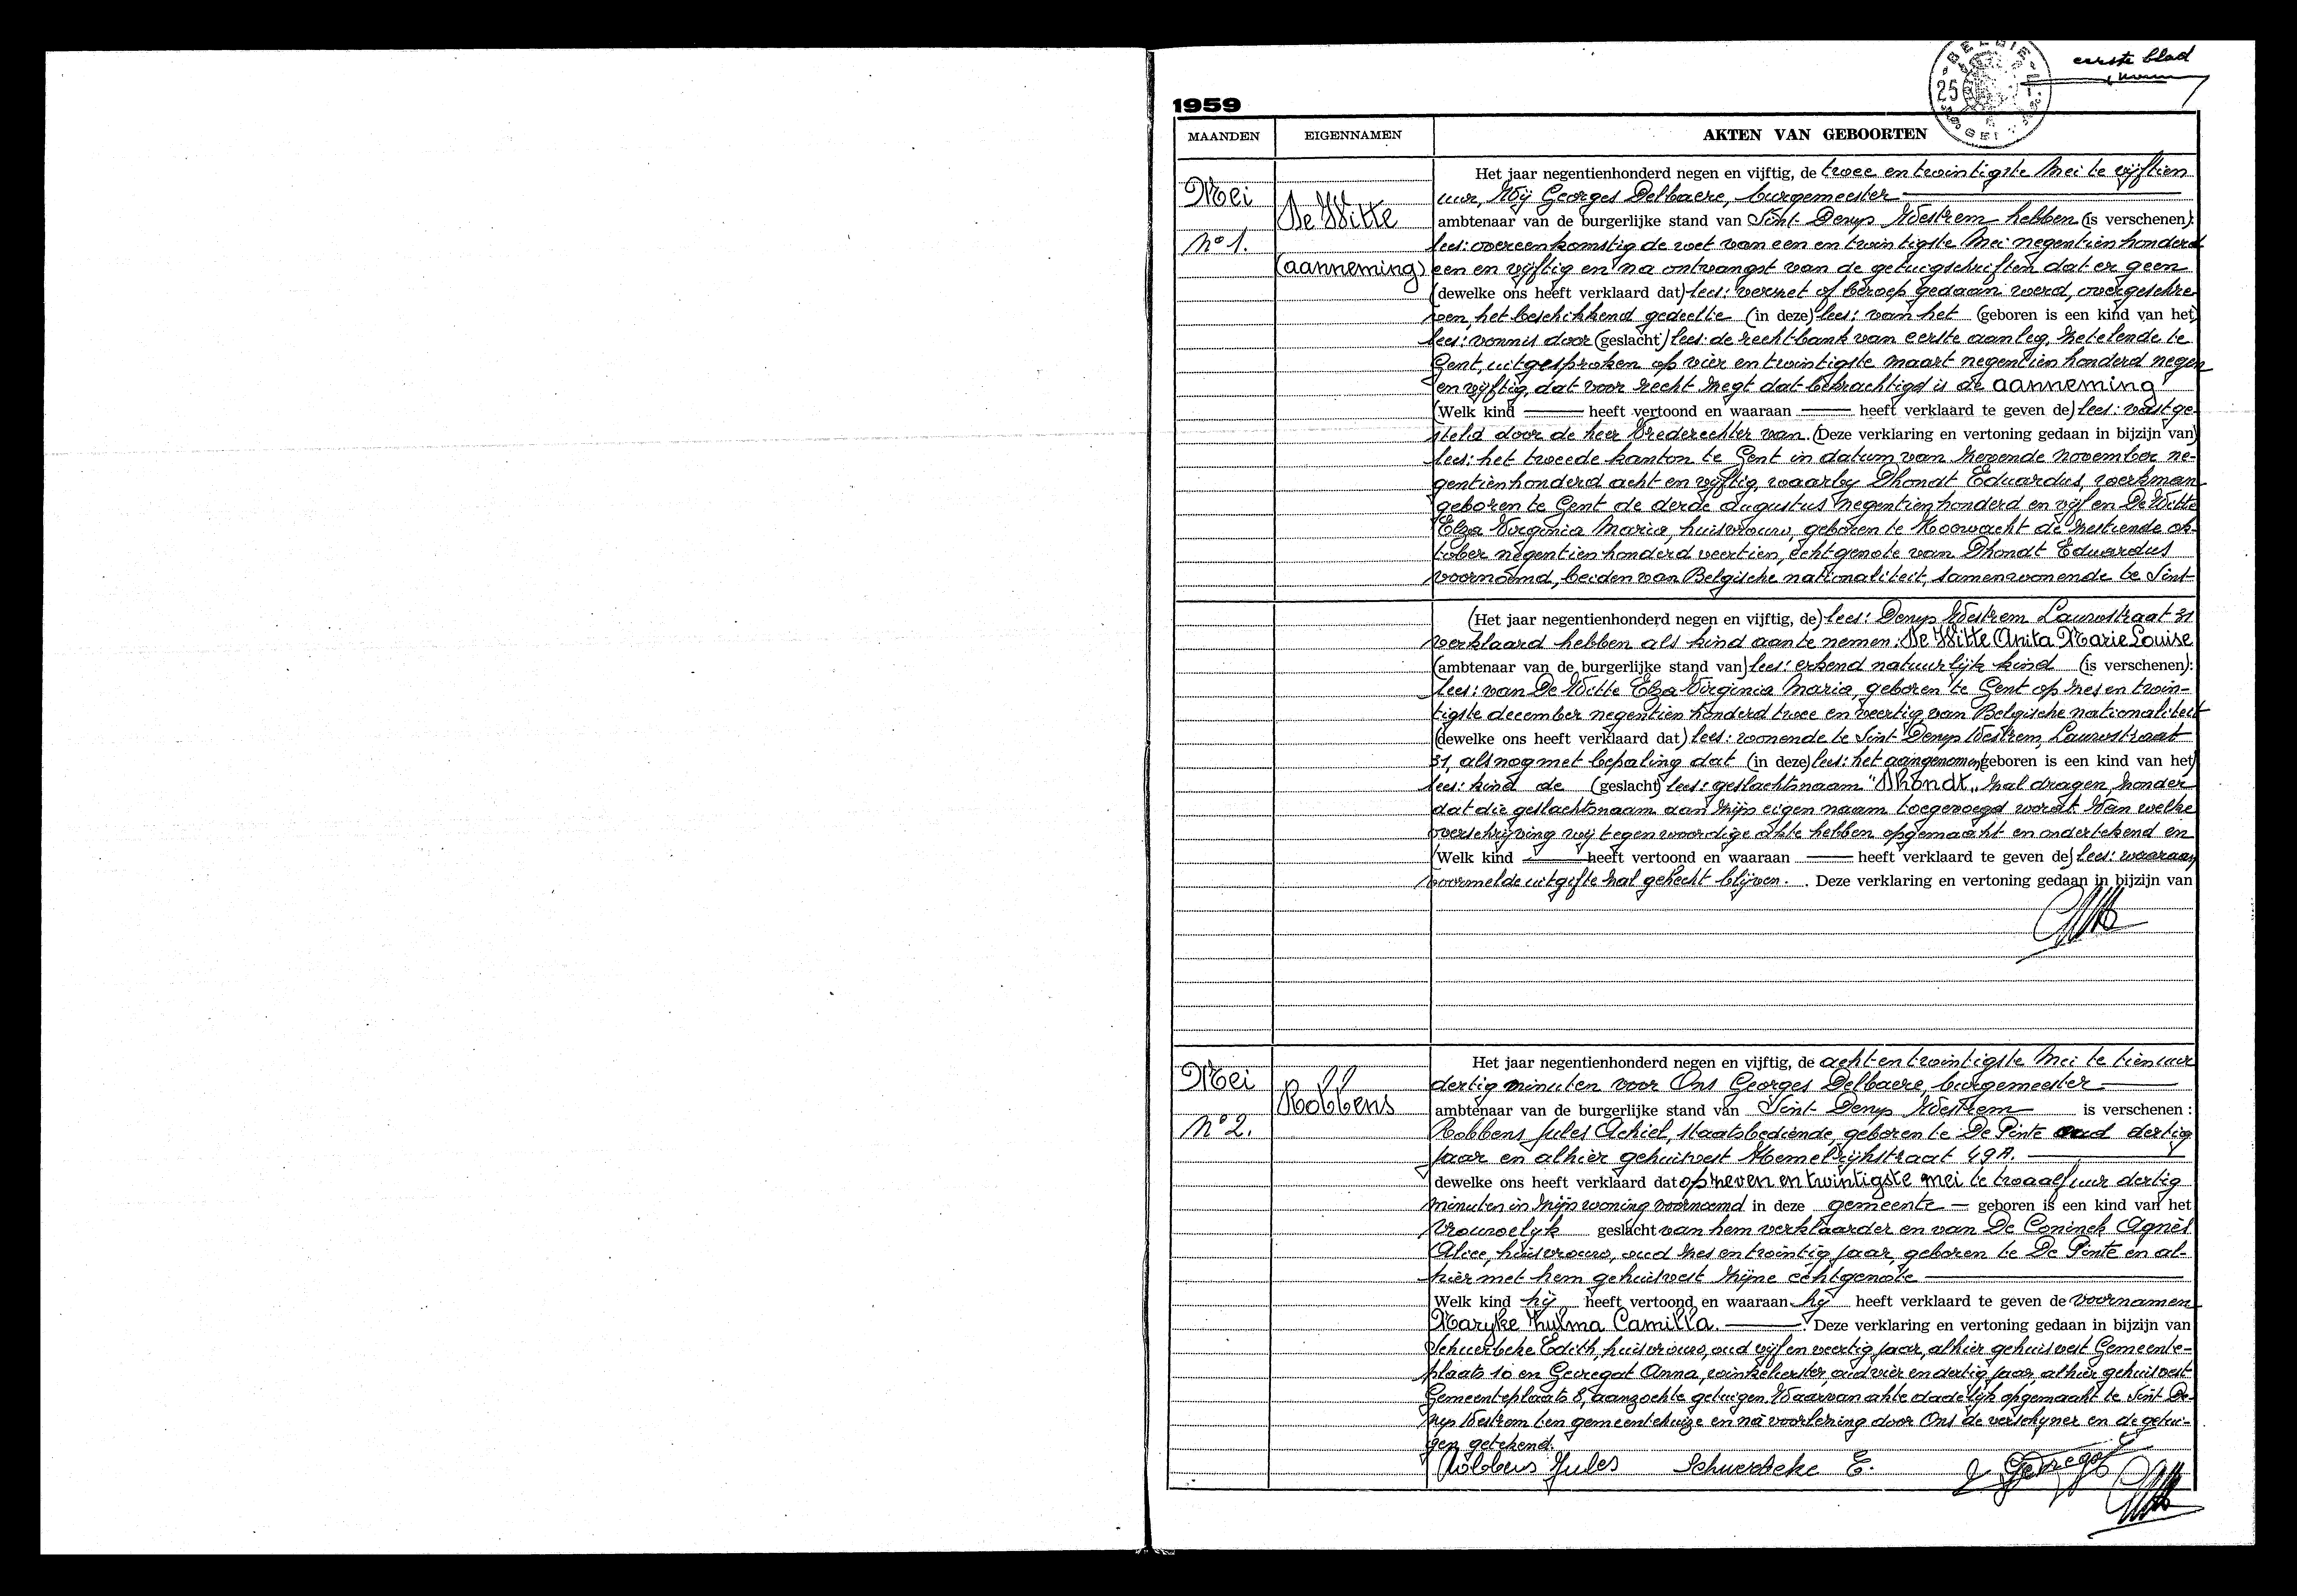 eerste blad
BELGIE
25
1959
MAANDEN
EIGENNAMEN
AKTEN VAN GEBOORTEN
Mei
De Witte
N° 1.
(aanneming)
Het jaar negentienhonderd negen en vijftig, de twee en twintigste Mei te vijftien
uur, Wij Georges Delbaere, burgemeester
ambtenaar van de burgerlijke stand van Sint-Denys Westrem hebben (is verschenen):
lees: overeenkomstig de wet van een en twintigste Mei negentienhonderd
een en vijftig en na ontvangst van de getuigschriften dat er geen
(dewelke ons heeft verklaard dat) lees: verzet of beroep gedaan werd, overgeschre
ven, het beschikkend gedeelte (in deze) lees: van het (geboren is een kind van het)
lees: vonnis door (geslacht) lees: de rechtbank van eerste aanleg, zetelende te
Gent, uitgesproken op vier en twintigste maart negentien honderd negen
en vijftig, dat voor recht zegt dat bekrachtigd is de aanneming
(Welk kind heeft vertoond en waaraan heeft verklaard te geven de) lees: vastge-
steld door de heer Vrederechter van (Deze verklaring en vertoning gedaan in bijzijn van)
lees: het tweede kanton te Gent in datum van zevende november ne-
gentienhonderd acht en vijftig, waarby Dhondt Eduardus, werkman
geboren te Gent de derde augustus negentienhonderd en vijf en De Witte
Elza Virginia Maria, huisvrouw, geboren te Moorsacht de zestiende ok-
tober negentien honderd veertien, echtgenote van Dhondt Eduardus
voornoemd, beiden van Belgische nationaliteit, samenwonende te Sint-
(Het jaar negentienhonderd negen en vijftig, de) lees: Denys Westrem Lauwstraat 31
verklaard hebben als kind aan te nemen: De Witte Anita Marie Louise
(ambtenaar van de burgerlijke stand van) lees: erkend natuurlijk kind (is verschenen):
lees: van De Witte Elza Virginia Maria, geboren te Gent op zes en twin-
tigste december negentien honderd twee en veertig, van Belgische nationaliteit
(dewelke ons heeft verklaard dat) lees: wonende te Sint-Denys Westrem, Lauwstraat
31, alsnog met bepaling dat (in deze) lees: het aangenomen (geboren is een kind van het)
lees: kind de (geslacht) lees: geslachtsnaam "Dhondt" zal dragen, zonder
dat die geslachtsnaam aan zijn eigen naam toegevoegd wordt. Van welke
overschrijving wij tegenwoordige akte hebben opgemaakt en ondertekend en
(Welk kind heeft vertoond en waaraan heeft verklaard te geven de) lees: waaraan
voormelde uitgifte zal gehecht blijven. Deze verklaring en vertoning gedaan in bijzijn van
Mei
Robbens
N° 2.
Het jaar negentienhonderd negen en vijftig, de acht en twintigste Mei te tien uur
dertig minuten voor Ons Georges Delbaere, burgemeester
ambtenaar van de burgerlijke stand van Sint-Denys Westrem is verschenen:
Robbens Jules Achiel, staatsbediende, geboren te De Pinte oud dertig
jaar en alhier gehuisvest Hemelrijkstraat 49A.
dewelke ons heeft verklaard dat op zeven en twintigste mei te twaalf uur dertig
minuten in zijn woning voornoemd in deze gemeente geboren is een kind van het
vrouwelijk geslacht van hem verklaarder en van De Coninck Agnès
Alice, huisvrouw, oud zes en twintig jaar, geboren te De Pinte en al-
hier met hem gehuisvest zijne echtgenote
Welk kind hij heeft vertoond en waaraan hij heeft verklaard te geven de voornamen
Maryke Thulma Camilla. Deze verklaring en vertoning gedaan in bijzijn van
Schuerbeke Edith, huisvrouw, oud vijf en veertig jaar, alhier gehuisvest Gemeente-
plaats 10 en Gevregat Anna, winkelierster, oud vier en dertig jaar, alhier gehuisvest
Gemeenteplaats 8, aanzochte getuigen. Waarvan akte dadelijk opgemaakt te Sint-De-
nys Westrem ten gemeentehuize en na voorlezing door Ons de verschyner en de getui-
gen getekend.
Robbens Jules Schuerbeke E. Gevregat